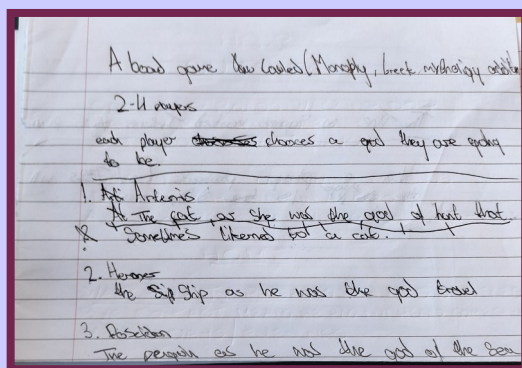 A board game called (Monoply, Greek mythology
2-4 players
each player chooses a god they are going
to be.
1. Artemis
The cat, as she was the god of hunt that
Sometimes likened to a cat.
2. Hermes
the Ship as he was the god travel
3. Poseidon
The penguin as he was the god of the Sea